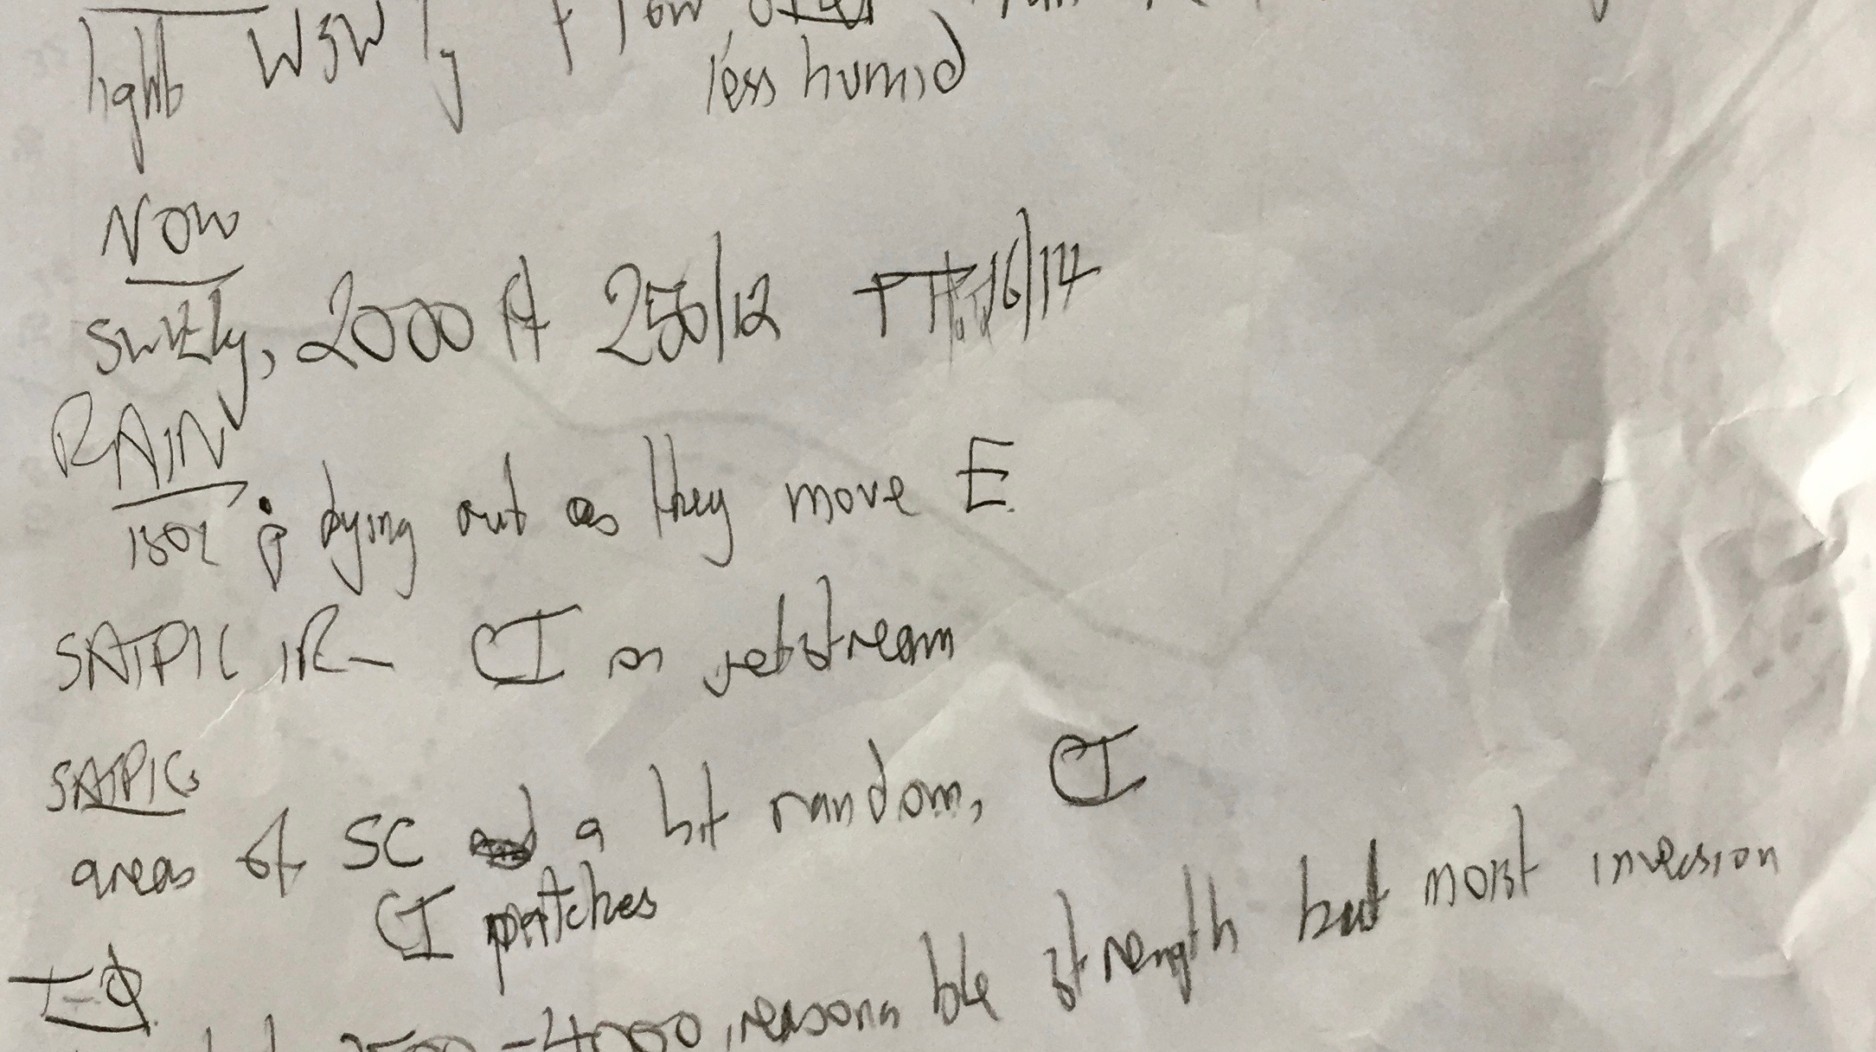 light WSW'ly
less humid
NOW
SW'ly, 2000 ft 250/12 TT 16/14
RAIN
150Z dying out as they move E.
SATPIC IR - CI on jetstream
SATPIC
areas of SC a bit random, CI
CI patches
T-Φ
-4000, reasonable strength but moist inversion